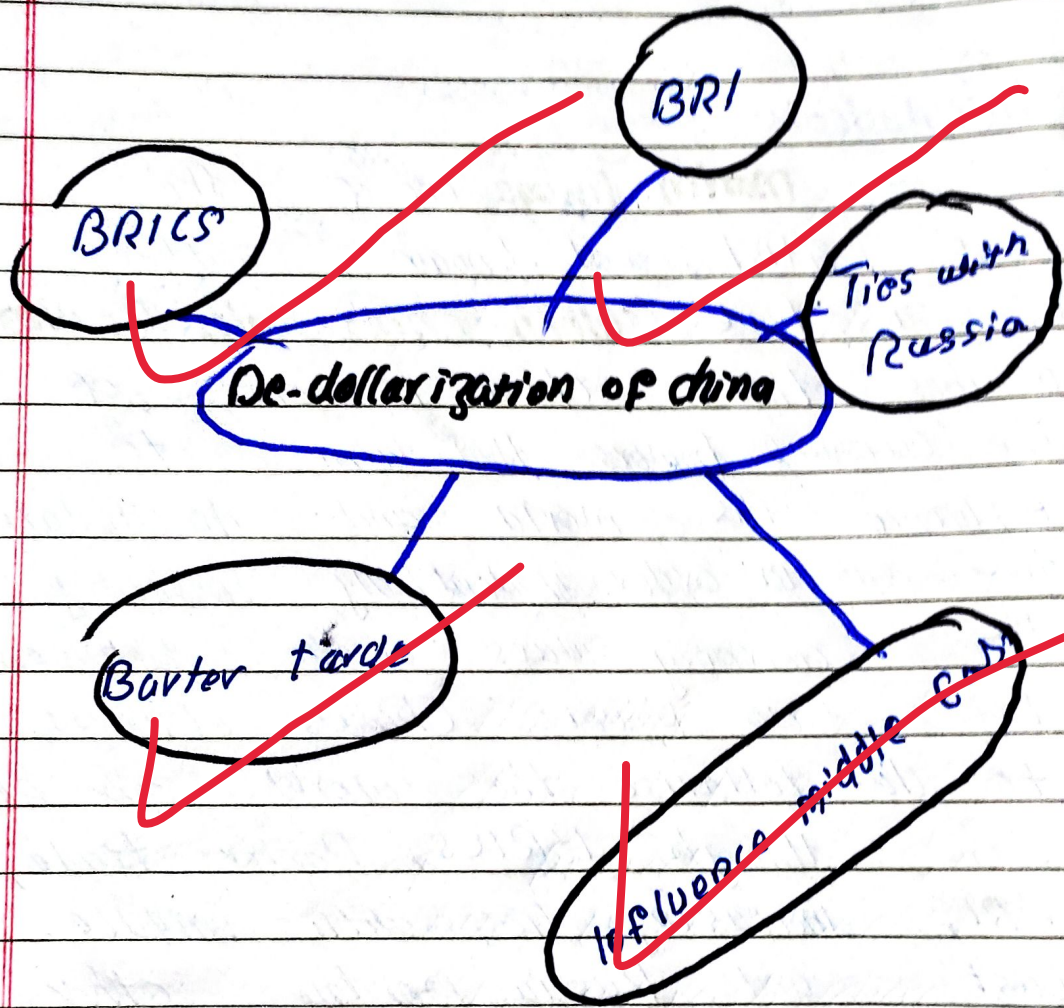 BRI
BRICS
Ties with
Russia
De-dollarization of china
Barter tarde
Influence middle East